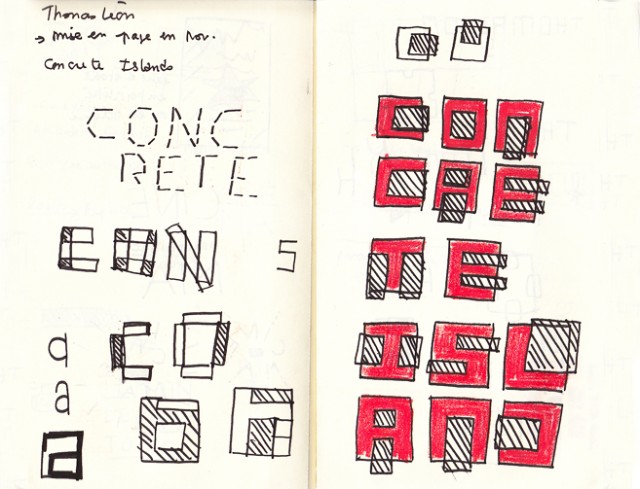 Thomas Léon
→ mise en page en nov.
Concrete Islands
CONC
RETE
C O N S
a C O
a
a
CON
CRE
TE
ISL
AND